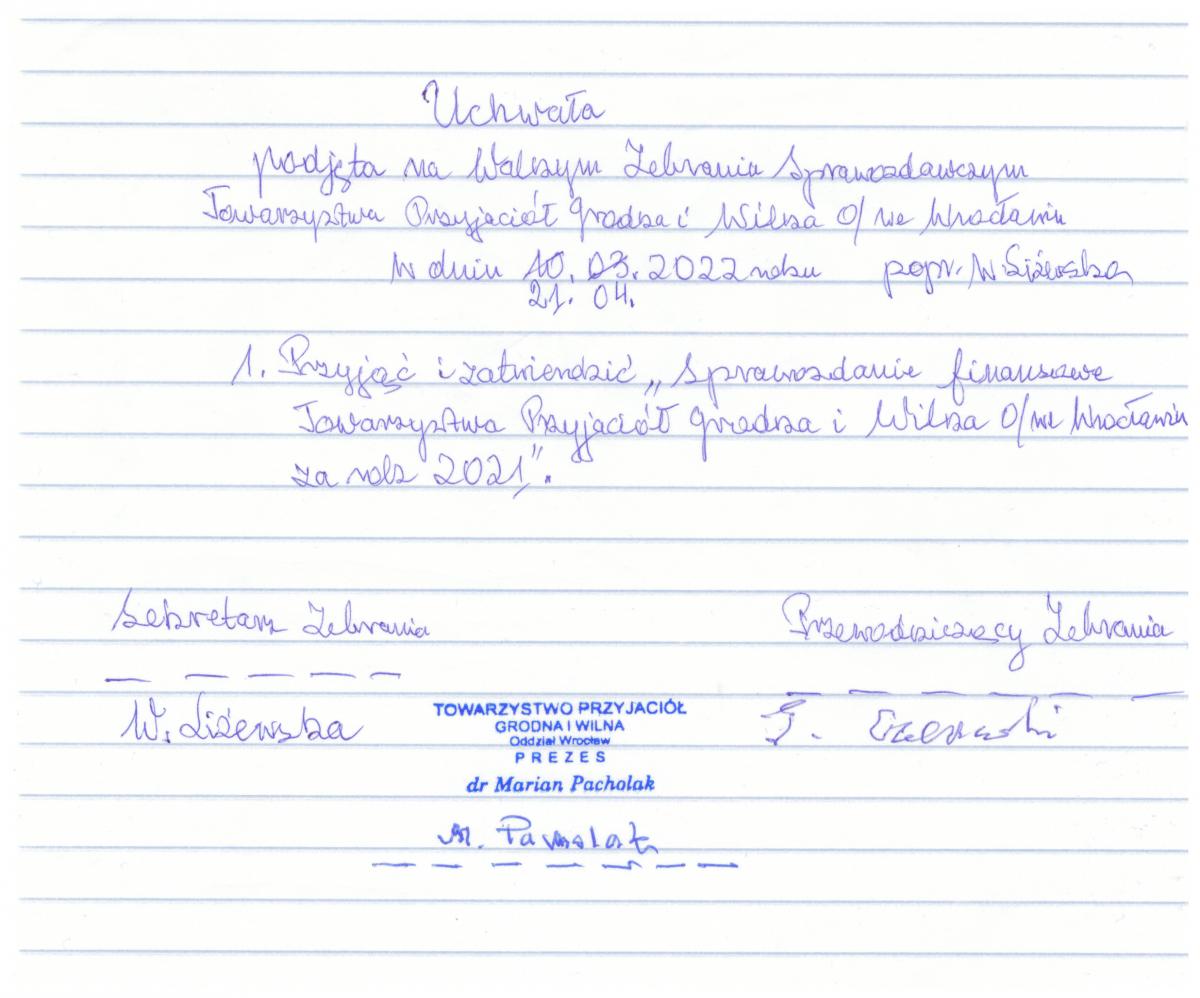 Uchwała
podjęta na Walnym Zebraniu Sprawozdawczym
Towarzystwa Przyjaciół Grodna i Wilna O/we Wrocławiu
w dniu 10. 03. 2022 roku popr. W. Liżewska
21. 04.
1. Przyjąć i zatwierdzić „Sprawozdanie finansowe
Towarzystwa Przyjaciół Grodna i Wilna O/we Wrocławiu
za rok 2021”.
Sekretarz Zebrania Przewodniczący Zebrania
W. Liżewska
TOWARZYSTWO PRZYJACIÓŁ
GRODNA I WILNA
Oddział Wrocław
PREZES
dr Marian Pacholak
M. Pacholak